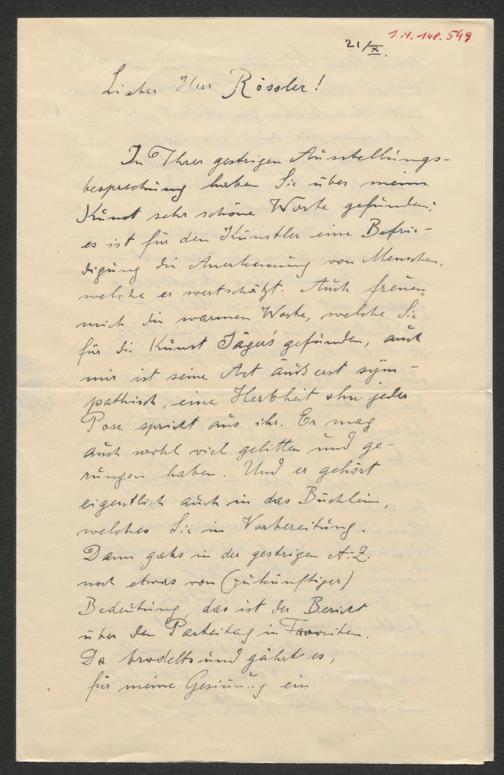 I.N. 148.549
21/X.
Lieber Herr Rössler!
In Ihrer gestrigen Ausstellungs-
besprechung haben Sie über meine
Kunst sehr schöne Worte gefunden;
es ist für den Künstler eine Befrie-
digung die Anerkennung von Menschen,
welche er wertschätzt. Auch freuen
mich die warmen Worte, welche Sie
für die Kunst Jäger's gefunden, auch
mir ist seine Art äußerst sym-
pathisch, eine Herbheit ohne jeder
Pose spricht aus ihr. Er mag
auch wohl viel gelitten und ge-
rungen haben. Und er gehört
eigentlich auch in das Büchlein,
welches Sie in Vorbereitung.
Dann gabs in der gestrigen A.Z.
noch etwas von (zukünftiger)
Bedeutung, das ist der Bericht
über den Parteitag in Favoriten.
Da brodelts und gährt es,
für meine Gesinnung ein